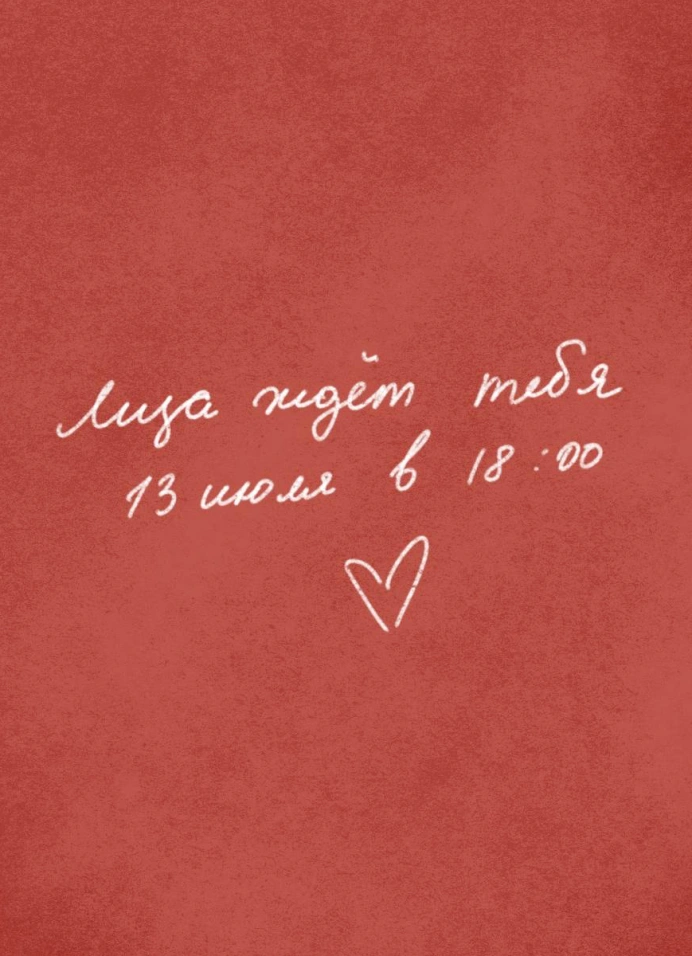 Лиза ждёт тебя
13 июля в 18:00